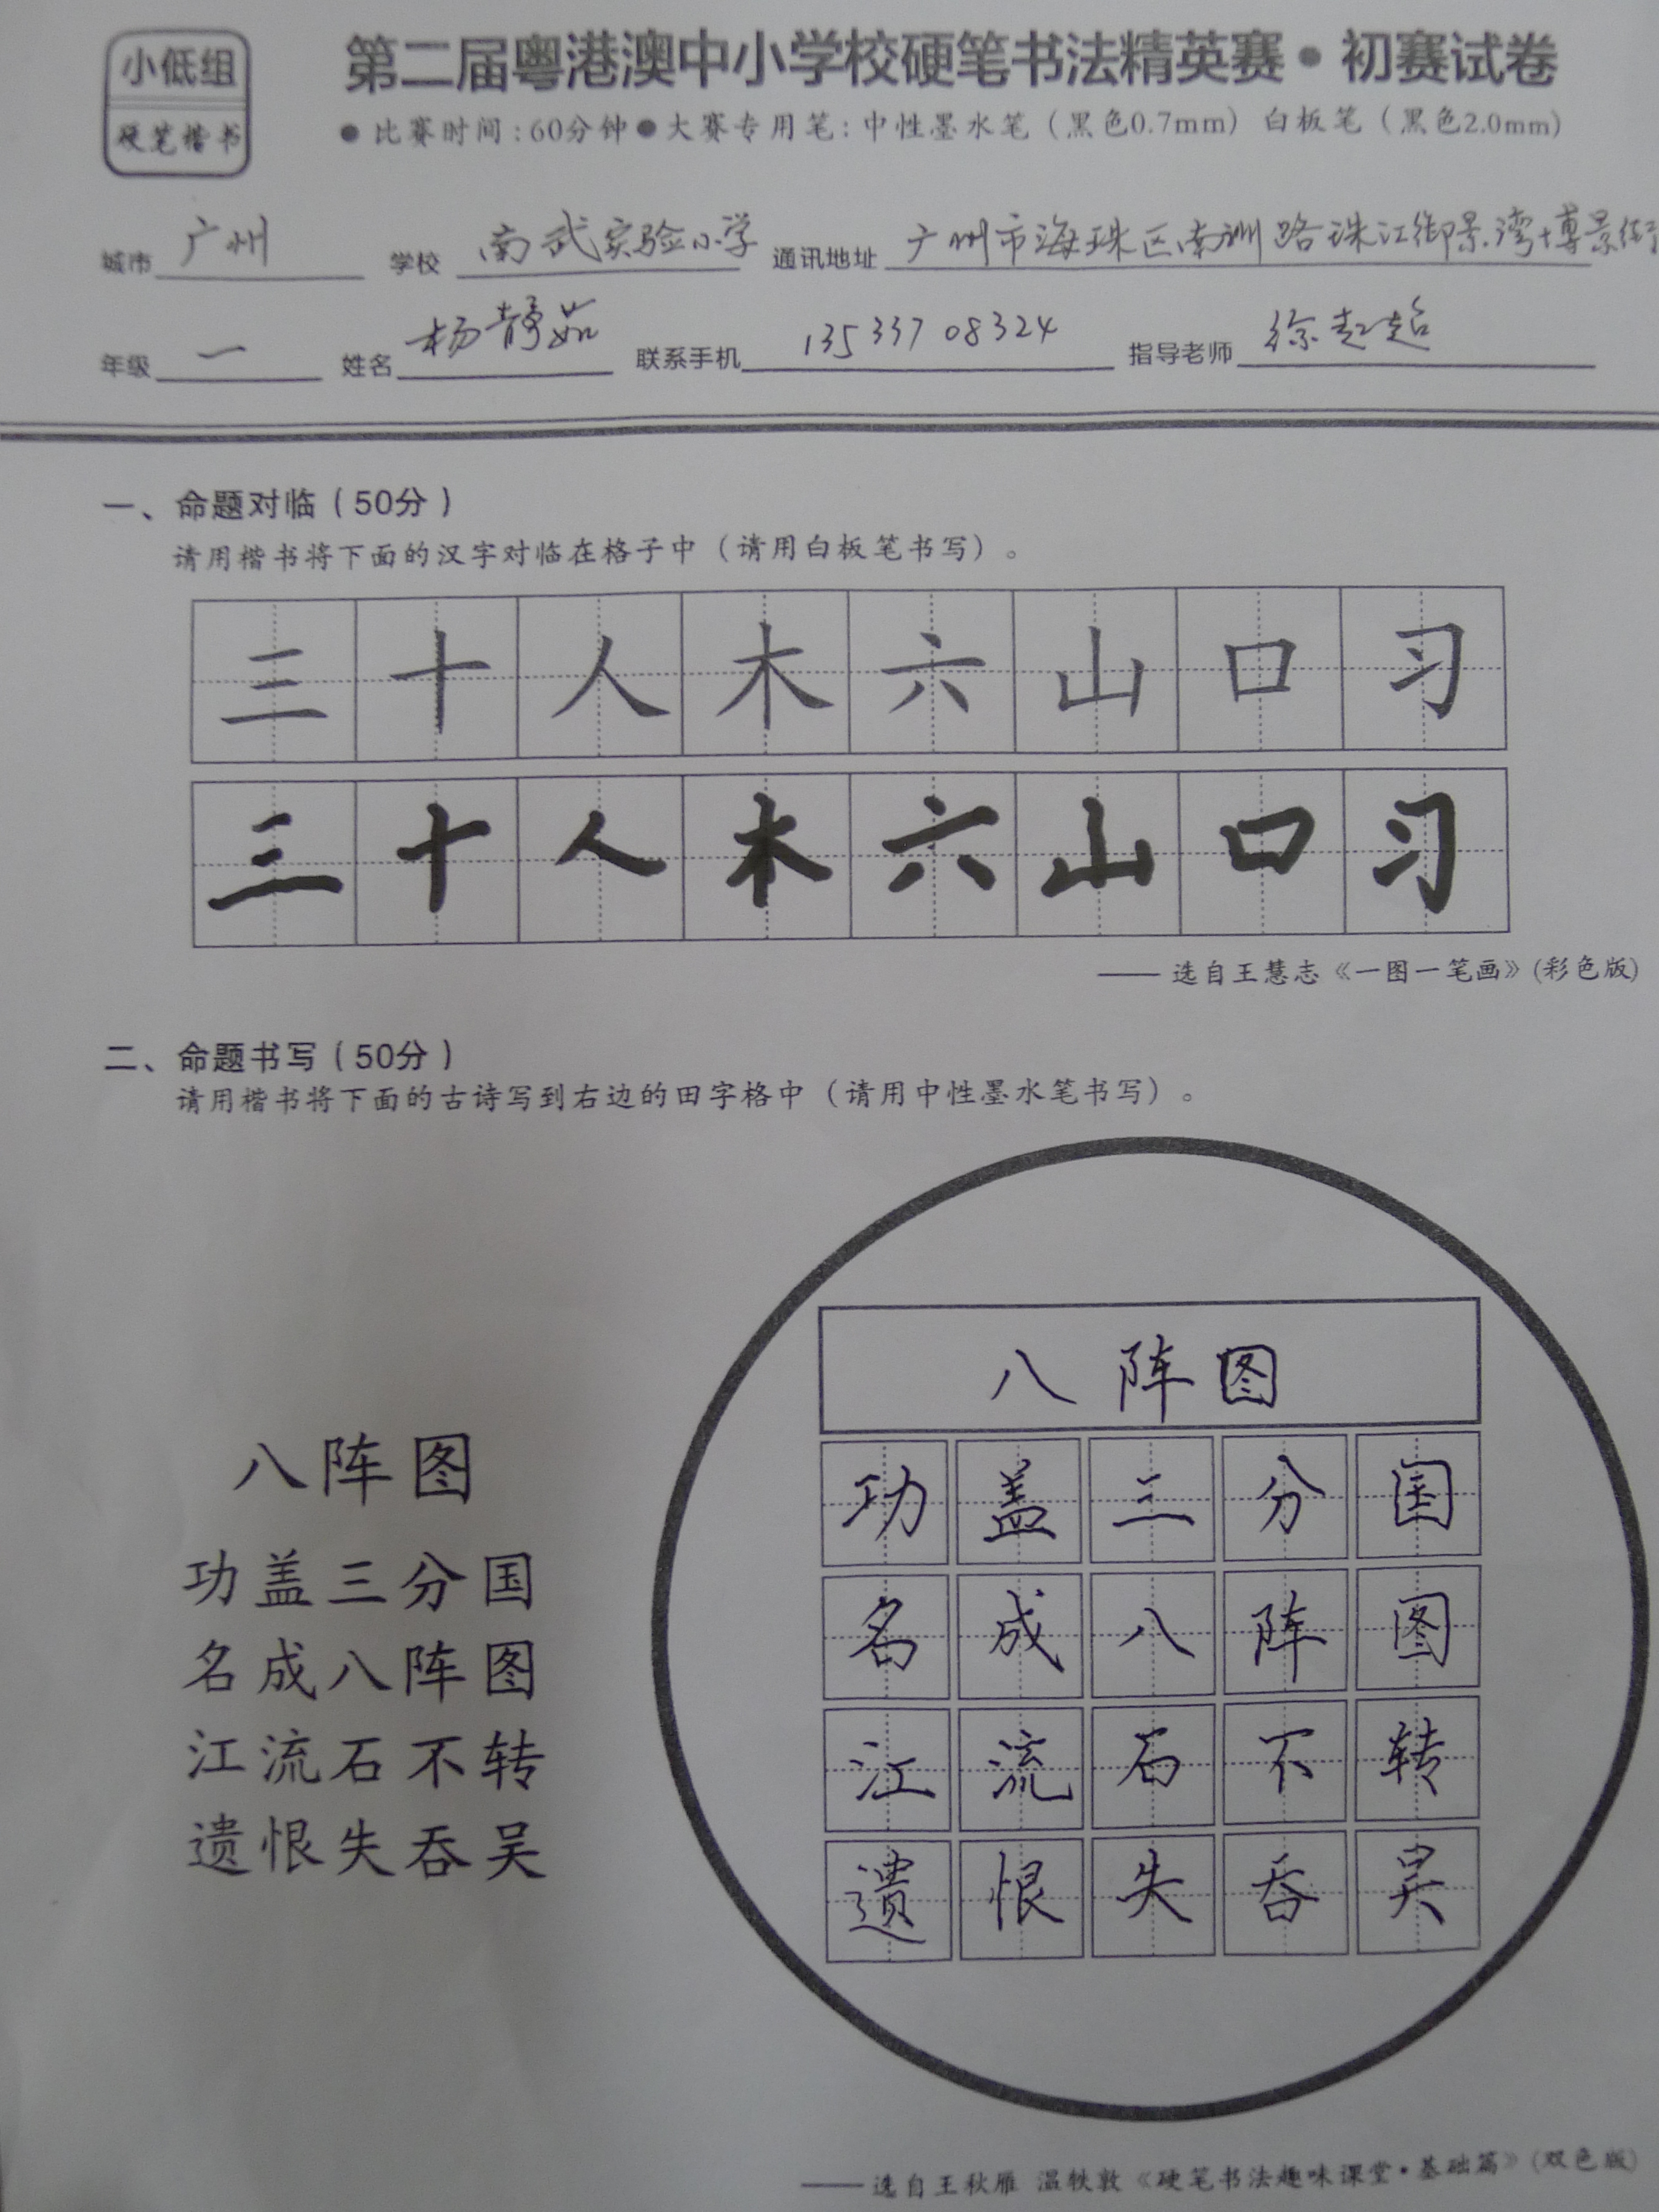 小低组
硬笔楷书
第二届粤港澳中小学校硬笔书法精英赛·初赛试卷
●比赛时间:60分钟●大赛专用笔:中性墨水笔（黑色0.7mm）白板笔（黑色2.0mm）
城市 广州 学校 南武实验小学 通讯地址 广州市海珠区南洲路珠江御景湾博景街
年级 一 姓名 杨静茹 联系手机 13533708324 指导老师 徐赵超
一、命题对临（50分）
请用楷书将下面的汉字对临在格子中（请用白板笔书写）。
三十人木六山口习
三十人木六山口习
——选自王慧志《一图一笔画》(彩色版)
二、命题书写（50分）
请用楷书将下面的古诗写到右边的田字格中（请用中性墨水笔书写）。
八阵图
功盖三分国
名成八阵图
江流石不转
遗恨失吞吴
八阵图
功盖三分国
名成八阵图
江流石不转
遗恨失吞吴
——选自王秋雁 温轶敦《硬笔书法趣味课堂·基础篇》(双色版)